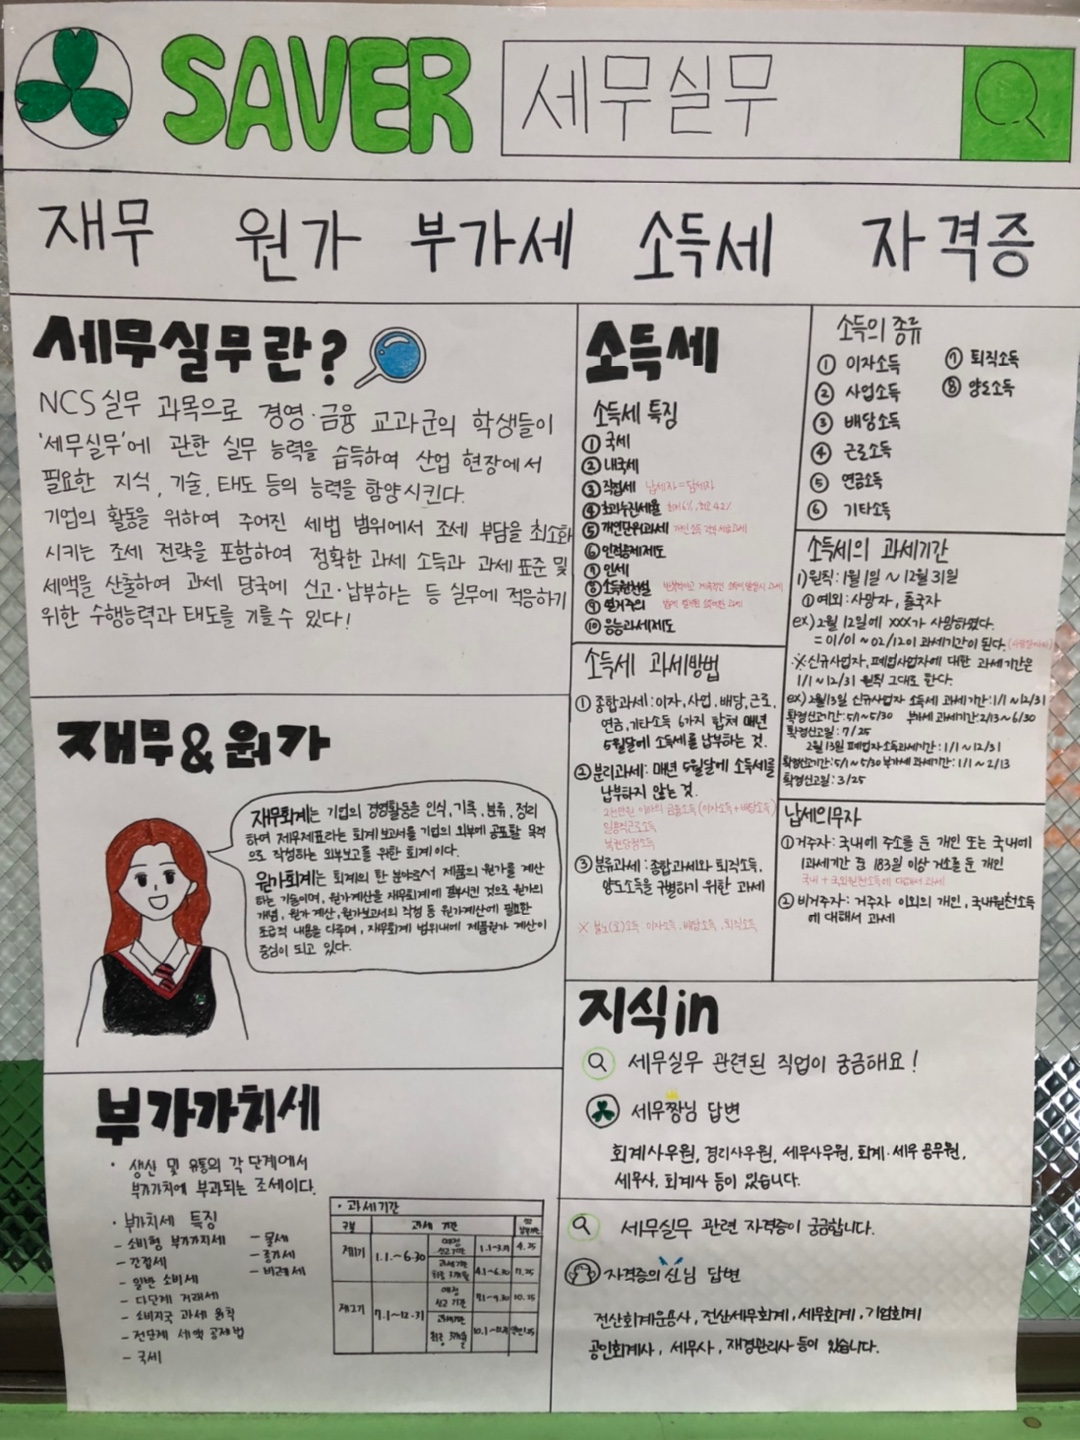 SAVER
세무실무
재무 원가 부가세 소득세 자격증
세무실무란?
NCS 실무 과목으로 경영·금융 교과군의 학생들이
'세무실무'에 관한 실무 능력을 습득하여 산업 현장에서
필요한 지식, 기술, 태도 등의 능력을 함양시킨다.
기업의 활동을 위하여 주어진 세법 범위에서 조세 부담을 최소화
시키는 조세 전략을 포함하여 정확한 과세 소득과 과세 표준 및
세액을 산출하여 과세 당국에 신고·납부하는 등 실무에 적응하기
위한 수행능력과 태도를 기를 수 있다!
재무&원가
재무회계는 기업의 경영활동을 인식, 기록, 분류, 정리
하여 재무제표라는 회계 보고서를 기업의 외부에 공표할 목적
으로 작성하는 외부보고를 위한 회계이다.
원가회계는 회계의 한 분야로서 제품의 원가를 계산
하는 기술이며, 원가계산을 재무회계에 결부시킨 것으로 원가의
개념, 원가 계산, 원가보고서의 작성 등 원가계산에 필요한
초급적 내용을 다루며, 재무회계 범위내에 제품원가 계산이
중심이 되고 있다.
부가가치세
· 생산 및 유통의 각 단계에서
부가가치에 부과되는 조세이다.
· 부가치세 특징
- 소비형 부가가치세
- 간접세
- 일반 소비세
- 다단계 거래세
- 소비지국 과세 원칙
- 전단계 세액 공제법
- 국세
- 물세
- 종가세
- 비례세
· 과세기간
구분 과세 기간
제1기 1.1.~6.30 예정 신고기간 1.1~3.31 4.25
과세기간 최종 3개월 4.1~6.30 7.25
제2기 7.1~12.31 예정 신고 기간 7.1~9.30 10.25
과세기간 최종 3개월 10.1~12.31
소득세
소득세 특징
① 국세
② 내국세
③ 직접세 납세자=담세자
④ 초과누진세율 최저6%, 최고42%
⑤ 개인단위과세
⑥ 인적공제제도
⑦ 인세
⑧ 소득원천설
⑨ 열거주의
⑩ 응능과세제도
소득의 종류
① 이자소득
② 사업소득
③ 배당소득
④ 근로소득
⑤ 연금소득
⑥ 기타소득
⑦ 퇴직소득
⑧ 양도소득
소득세의 과세기간
1) 원칙: 1월 1일 ~ 12월 31일
① 예외: 사망자, 출국자
ex) 2월 12일에 XXX가 사망하였다.
= 01/01 ~ 02/12이 과세기간이 된다.
※신규사업자, 폐업사업자에 대한 과세기간은
1/1 ~ 12/31 원칙 그대로 한다.
ex) 2월13일 신규사업자 소득세 과세기간: 1/1 ~ 12/31
확정신고기간: 5/1~5/30 부가세 과세기간: 2/13~6/30
확정신고일: 7/25
2월 13일 폐업자 소득과세기간: 1/1 ~ 12/31
확정신고기간: 5/1~5/30 부가세 과세기간: 1/1 ~ 2/13
확정신고일: 3/25
소득세 과세방법
① 종합과세: 이자, 사업, 배당, 근로,
연금, 기타소득 6가지 합쳐 매년
5월달에 소득세를 납부하는 것.
② 분리과세: 매년 5월달에 소득세를
납부하지 않는 것.
2천만원 이하의 금융소득(이자소득+배당소득)
일용직근로소득
복권당첨소득
③ 분류과세: 종합과세와 퇴직소득,
양도소득을 구별하기 위한 과세
이자소득, 배당소득, 퇴직소득
납세의무자
① 거주자: 국내에 주소를 둔 개인 또는 국내에
1과세기간 중 183일 이상 거소를 둔 개인
국내 + 국외원천소득에 대해서 과세
② 비거주자: 거주자 이외의 개인, 국내원천소득
에 대해서 과세
지식in
세무실무 관련된 직업이 궁금해요!
세무짱님 답변
회계사무원, 경리사무원, 세무사무원, 회계·세무 공무원,
세무사, 회계사 등이 있습니다.
세무실무 관련 자격증이 궁금합니다.
자격증의신님 답변
전산회계운용사, 전산세무회계, 세무회계, 기업회계
공인회계사, 세무사, 재경관리사 등이 있습니다.